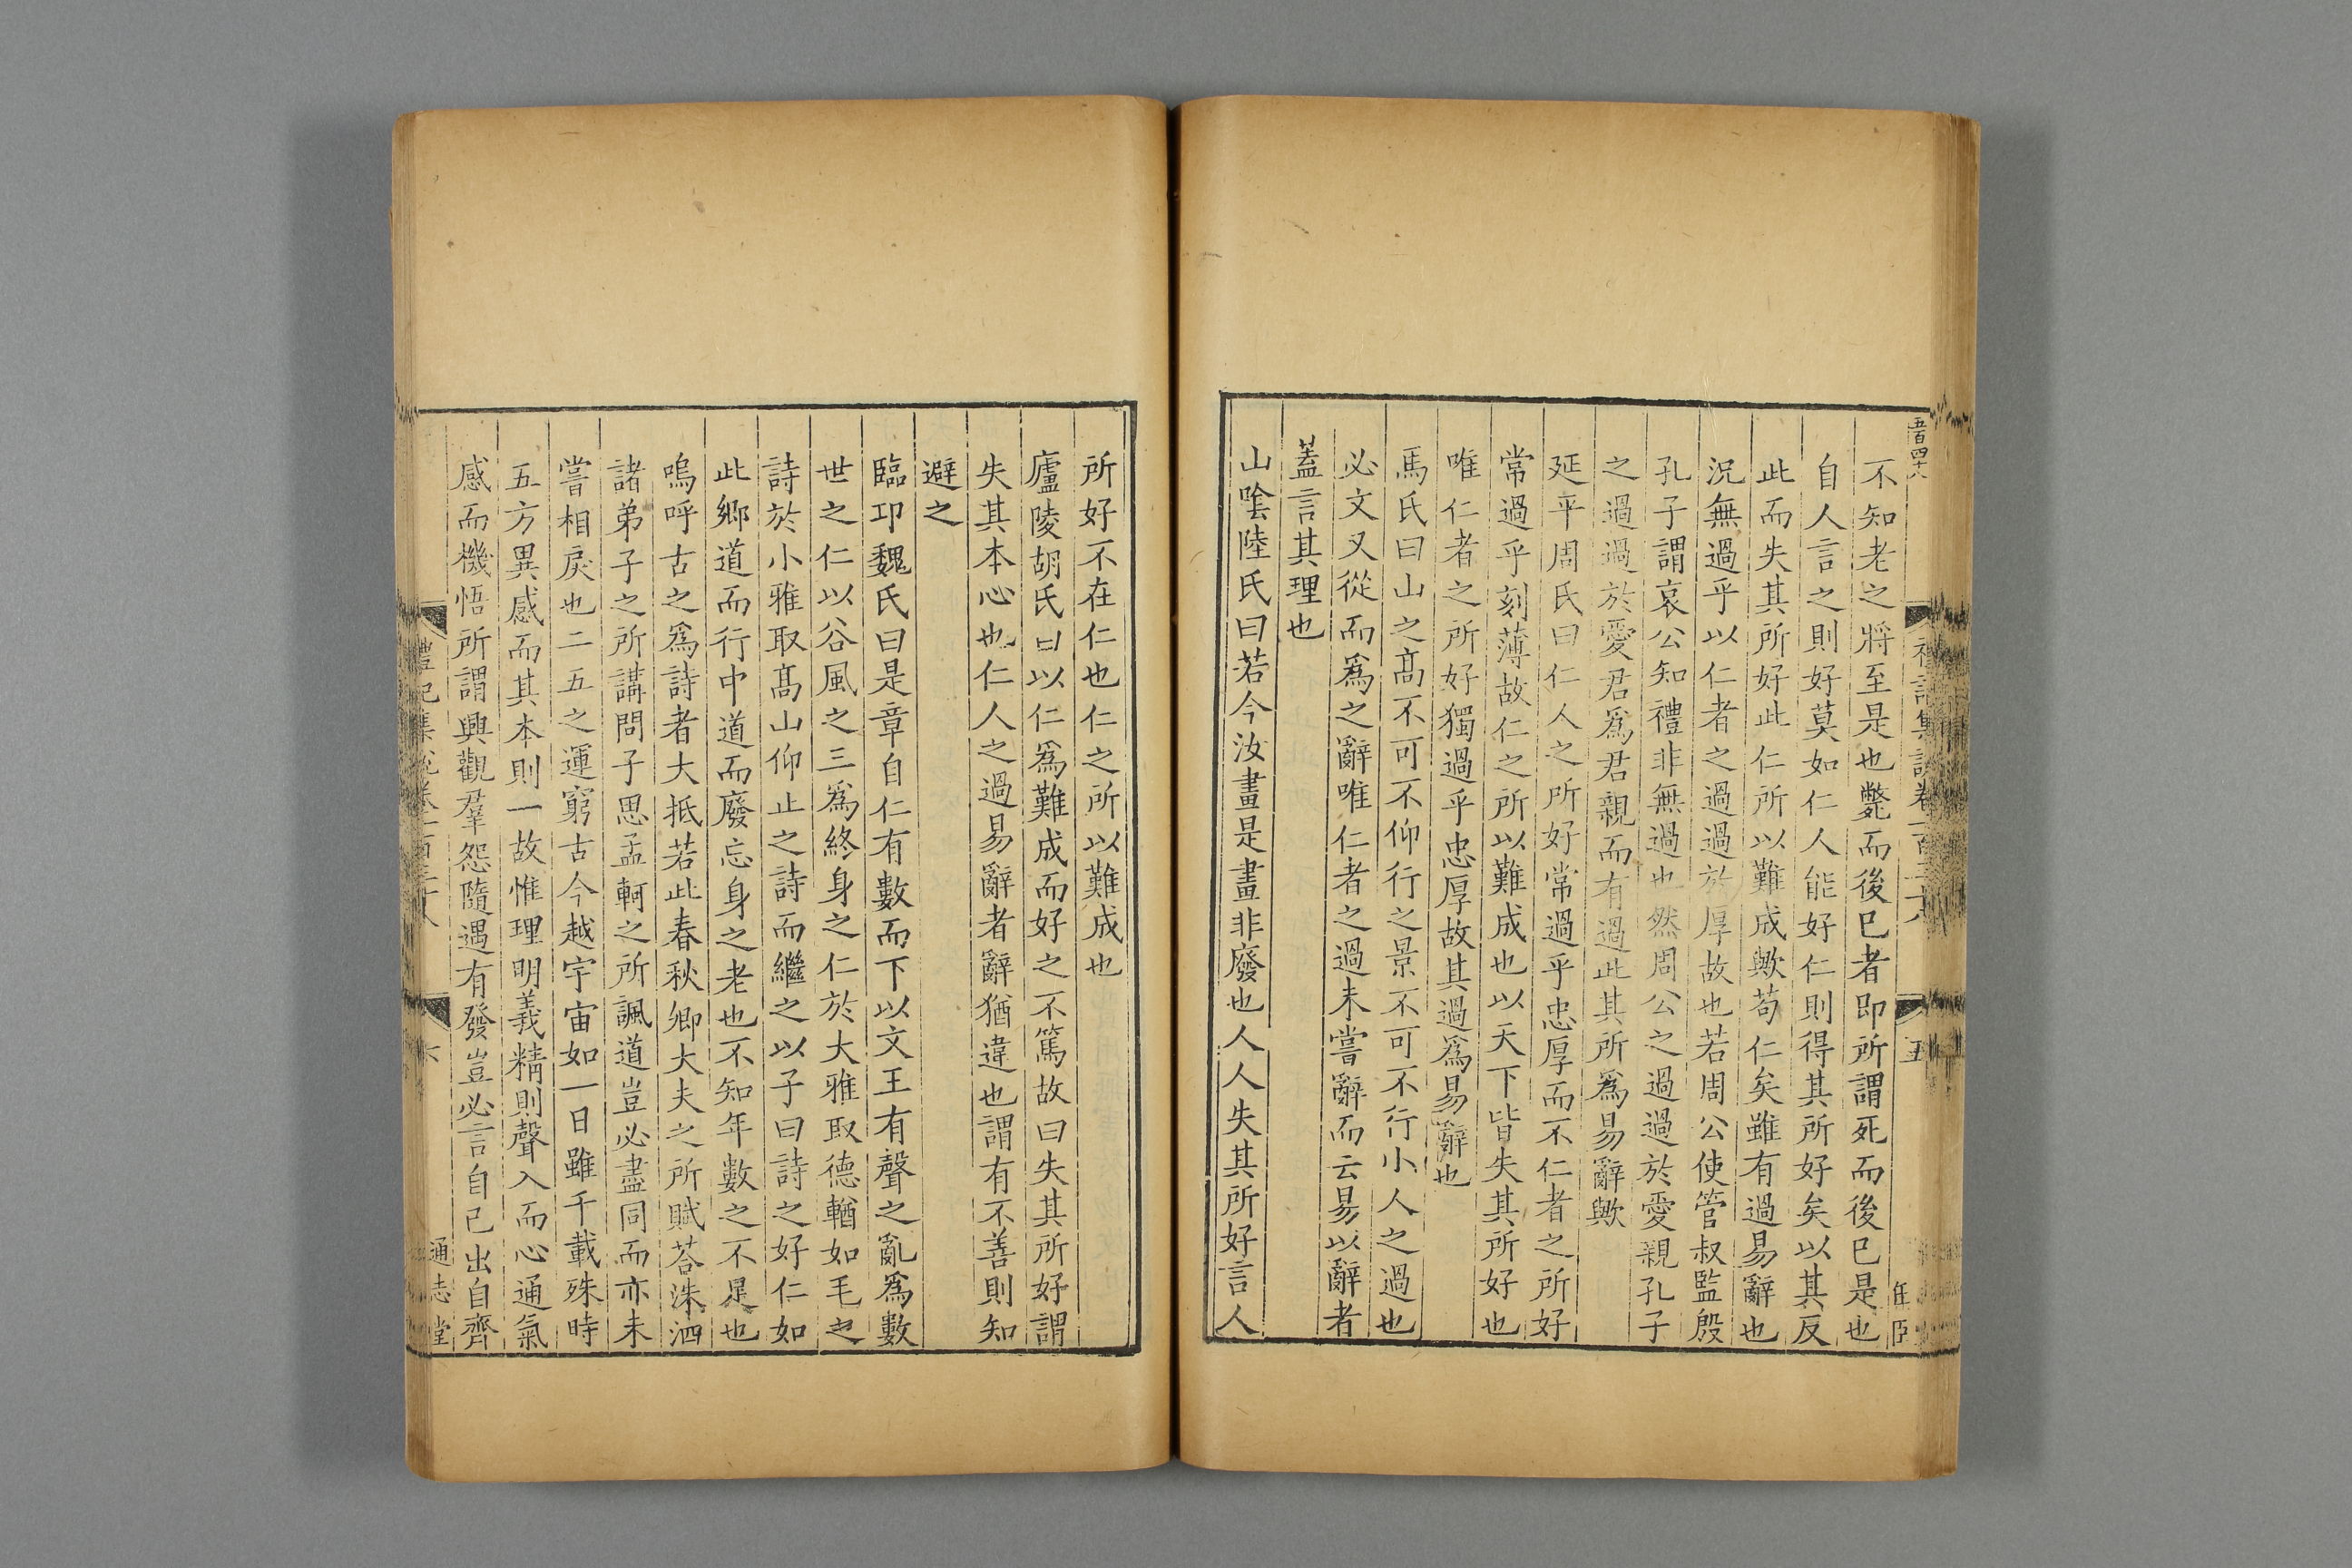 五百四十八
禮記集說卷一百三十八
五
不知老之將至是也斃而後已者即所謂死而後已是也
自人言之則好莫如仁人能好仁則得其所好矣以其反
此而失其所好此仁所以難成歟苟仁矣雖有過易辭也
況無過乎以仁者之過過於厚故也若周公使管叔監殷
孔子謂哀公知禮非無過也然周公之過過於愛親孔子
之過過於愛君爲君親而有過此其所爲易辭歟
延平周氏曰仁人之所好常過乎忠厚而不仁者之所好
常過乎刻薄故仁之所以難成也以天下皆失其所好也
唯仁者之所好獨過乎忠厚故其過爲易辭也
馬氏曰山之髙不可不仰行之景不可不行小人之過也
必文又從而爲之辭唯仁者之過未嘗辭而云易以辭者
蓋言其理也
山陰陸氏曰若今汝畫是畫非廢也人人失其所好言人
所好不在仁也仁之所以難成也
廬陵胡氏曰以仁爲難成而好之不篤故曰失其所好謂
失其本心也仁人之過易辭者辭猶違也謂有不善則知
避之
臨卭魏氏曰是章自仁有數而下以文王有聲之亂爲數
世之仁以谷風之三爲終身之仁於大雅取德輶如毛之
詩於小雅取髙山仰止之詩而繼之以子曰詩之好仁如
此鄉道而行中道而廢忘身之老也不知年數之不足也
嗚呼古之爲詩者大抵若此春秋卿大夫之所賦荅洙泗
諸弟子之所講問子思孟軻之所諷道豈必盡同而亦未
嘗相戾也二五之運窮古今越宇宙如一日雖千載殊時
五方異感而其本則一故惟理明義精則聲入而心通氣
感而機悟所謂興觀羣怨隨遇有發豈必言自己出自齊
禮記集說卷一百三十八
六
通志堂